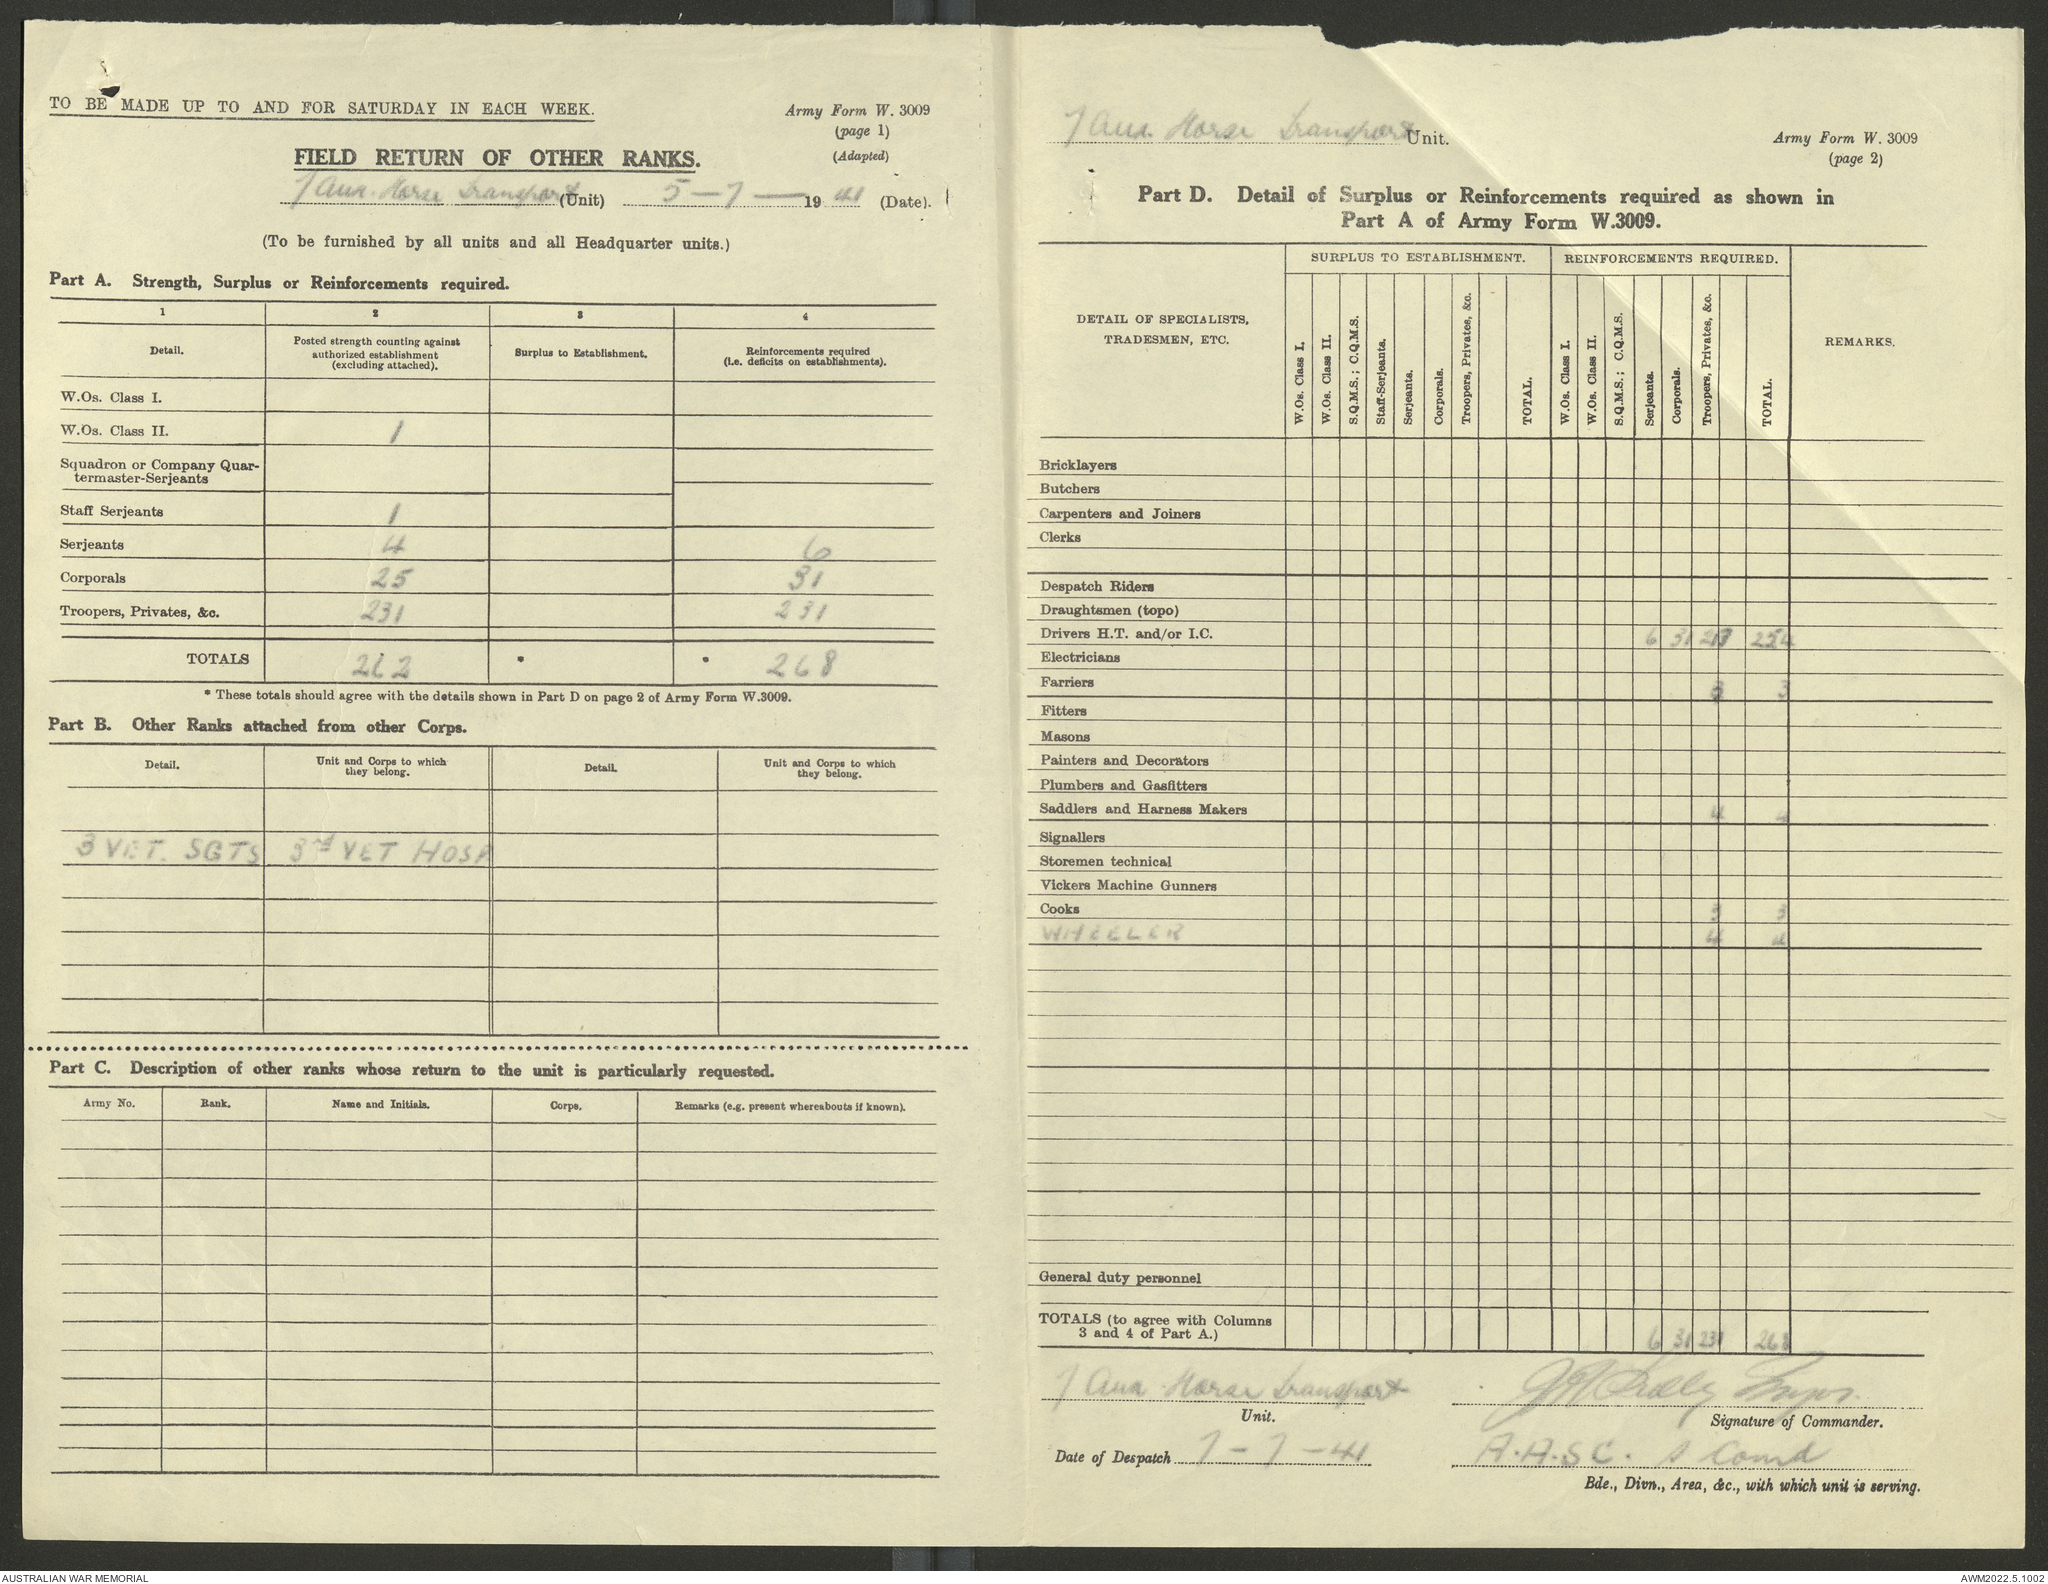 TO BE MADE UP TO AND FOR SATURDAY IN EACH WEEK.
Army Form W. 3009
(page 1)
(Adapted)
FIELD RETURN OF OTHER RANKS.
7 Aus. Horse Transport (Unit) 5 - 7 - 1941 (Date).
(To be furnished by all units and all Headquarter units.)
Part A. Strength, Surplus or Reinforcements required.
1 2 3 4
Detail. Posted strength counting against authorized establishment (excluding attached). Surplus to Establishment. Reinforcements required (i.e. deficits on establishments).
W.Os. Class I.
W.Os. Class II. 1
Squadron or Company Quar-
termaster-Serjeants
Staff Serjeants 1
Serjeants 4 6
Corporals 25 31
Troopers, Privates, &c. 231 231
TOTALS 262 * * 268
* These totals should agree with the details shown in Part D on page 2 of Army Form W.3009.
Part B. Other Ranks attached from other Corps.
Detail. Unit and Corps to which they belong. Detail. Unit and Corps to which they belong.
3 VET. SGTS 3rd VET HOSP
Part C. Description of other ranks whose return to the unit is particularly requested.
Army No. Rank. Name and Initials. Corps. Remarks (e.g. present whereabouts if known).
7 Aus. Horse Transport Unit.
Army Form W. 3009
(page 2)
Part D. Detail of Surplus or Reinforcements required as shown in
Part A of Army Form W.3009.
SURPLUS TO ESTABLISHMENT. REINFORCEMENTS REQUIRED.
DETAIL OF SPECIALISTS, TRADESMEN, ETC.
W.Os. Class I.
W.Os. Class II.
S.Q.M.S.; C.Q.M.S.
Staff-Serjeants.
Serjeants.
Corporals.
Troopers, Privates, &c.
TOTAL.
W.Os. Class I.
W.Os. Class II.
S.Q.M.S.; C.Q.M.S.
Serjeants.
Corporals.
Troopers, Privates, &c.
TOTAL.
REMARKS.
Bricklayers
Butchers
Carpenters and Joiners
Clerks
Despatch Riders
Draughtsmen (topo)
Drivers H.T. and/or I.C. 6 31 217 254
Electricians
Farriers 3 3
Fitters
Masons
Painters and Decorators
Plumbers and Gasfitters
Saddlers and Harness Makers 4 4
Signallers
Storemen technical
Vickers Machine Gunners
Cooks 3 3
WHEELER 4 4
General duty personnel
TOTALS (to agree with Columns
3 and 4 of Part A.) 6 31 231 268
7 Aus. Horse Transport
Unit.
Signature of Commander.
Date of Despatch 7 - 7 - 41
A.A.S.C. Comd
Bde., Divn., Area, &c., with which unit is serving.
AUSTRALIAN WAR MEMORIAL
AWM2022.5.1002